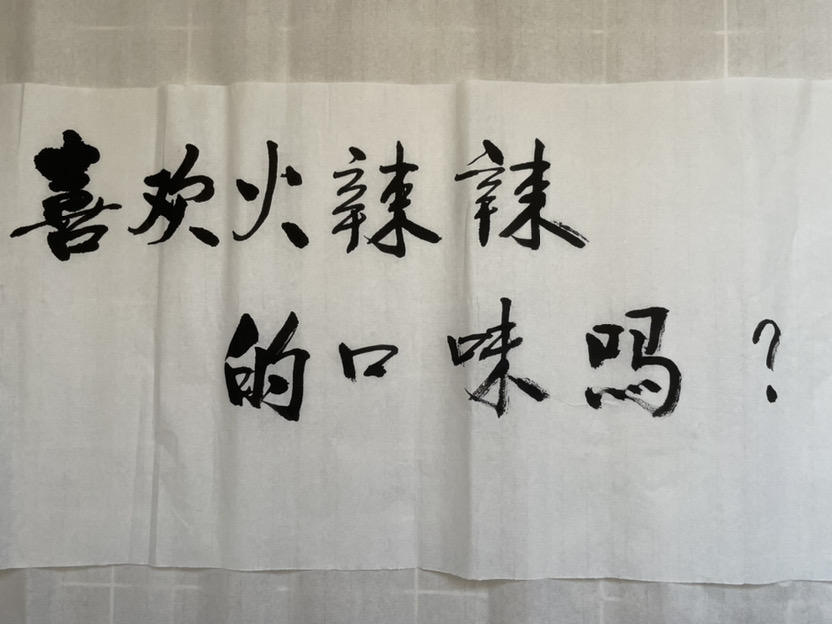 喜欢火辣辣
的口味吗？